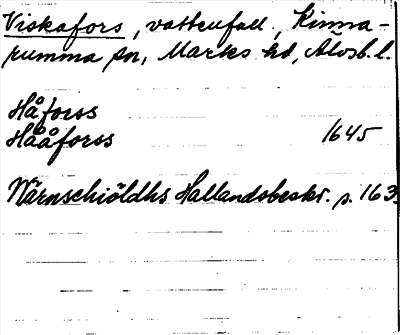 Viskafors, vattenfall, Kinna-
rumma sn, Marks hd, Älvsb. l.
Håforss
Hååforss 1645
Wärnschiöldhs Hallandsbeskr. s. 163